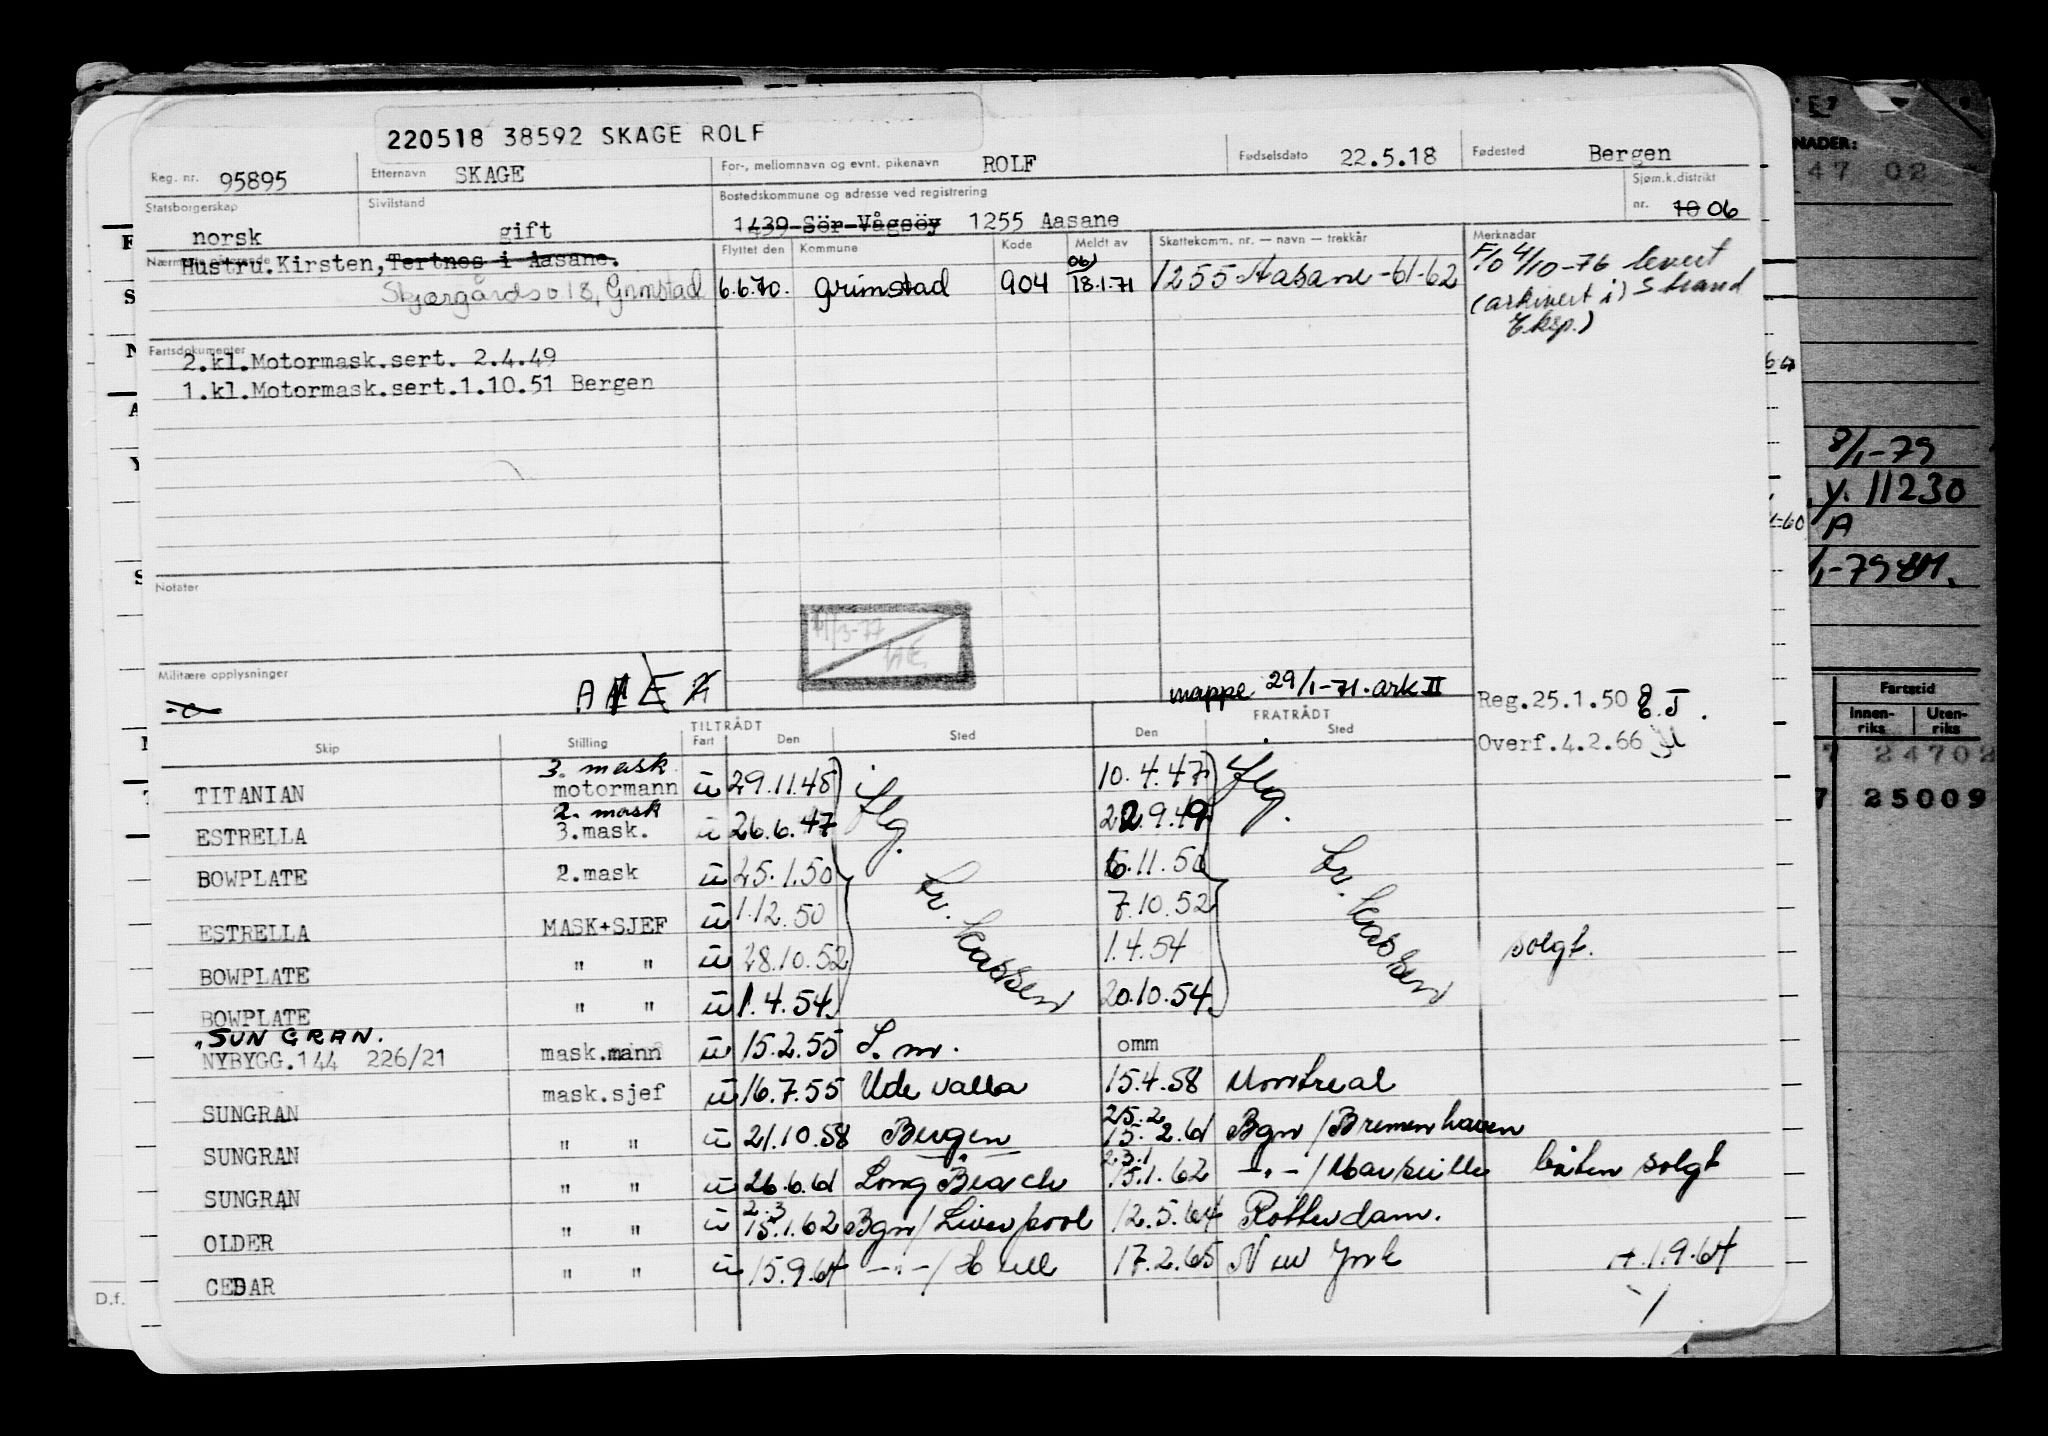 220518 38592 SKAGE ROLF
Reg. nr. 95895 Etternavn SKAGE For-, mellomnavn og evnt. pikenavn ROLF Fødselsdato 22.5.18 Fødested Bergen
Statsborgerskap norsk Sivilstand gift Bostedskommune og adresse ved registrering 1439 Sör-Vågsöy 1255 Aasane Sjøm.k.distrikt nr. 10 06
Hustru.Kirsten, Tertnes i Aasane. Flyttet den Kommune Kode Meldt av Skattekomm. nr. — navn — trekkår Merknader
Skjærgårdso 18, Grimstad 6.6.70. Grimstad 904 061 18.1.71 1255 Aasane -61-62 F/o 4/10-76 levert
(arkivert i) Strand
Eksp.)
Fartsdokumenter
2.kl.Motormask.sert. 2.4.49
1.kl.Motormask.sert.1.10.51 Bergen
Notater
Militære opplysninger
mappe 29/1-71. ark II
Reg.25.1.50
Overf.4.2.66
TILTRÅDT FRATRÅDT
Skip Stilling Fart Den Sted Den Sted
3. mask
TITANIAN motormann u 29.11.45 iflg. 10.4.47 iflg.
2. mask
ESTRELLA 3.mask. u 26.6.47 22.9.49
BOWPLATE 2.mask u 25.1.50 6.11.50
ESTRELLA MASK+SJEF u 1.12.50 7.10.52
BOWPLATE " " u 28.10.52 1.4.54 solgt.
BOWPLATE " " u 1.4.54 20.10.54
"SUNGRAN.
NYBYGG.144 226/21 mask.mann u 15.2.55 S. m. omm
SUNGRAN mask.sjef u 16.7.55 Udevalla 15.4.58 Montreal
25.2
SUNGRAN " " u 21.10.58 Bergen 15.2.61 Bgn/Bremenhaven
2.3.1
SUNGRAN " " u 26.6.61 Long Beach 15.1.62 -"-/Marseille båten solgt
2.3
OLDER " " u 15.1.62 Bgn/Liverpool 12.5.64 Rotterdam.
CEDAR " " u 15.9.64 -"-/Hull 17.2.65 New York + 1.9.64
NADER:
47 02
8/1-79
y. 11230
A
Fartstid
Innen-riks Uten-riks
7 24702
7 25009
D.f.